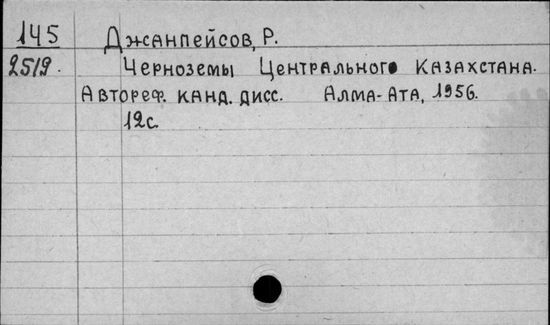 145 Джанпейсов, Р.
2519. Черноземы Центрального Казахстана.
Автореф. канд. дисс. Алма-Ата, 1956.
12с.